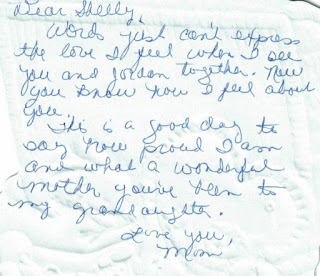 Dear Shelly,
Words just can't express
the love I feel when I see
you and Jordan together. Now
you know how I feel about
you.
This is a good day to
say how proud I am
and what a wonderful
mother you've been to
my grandaughter.
Love you,
Mom